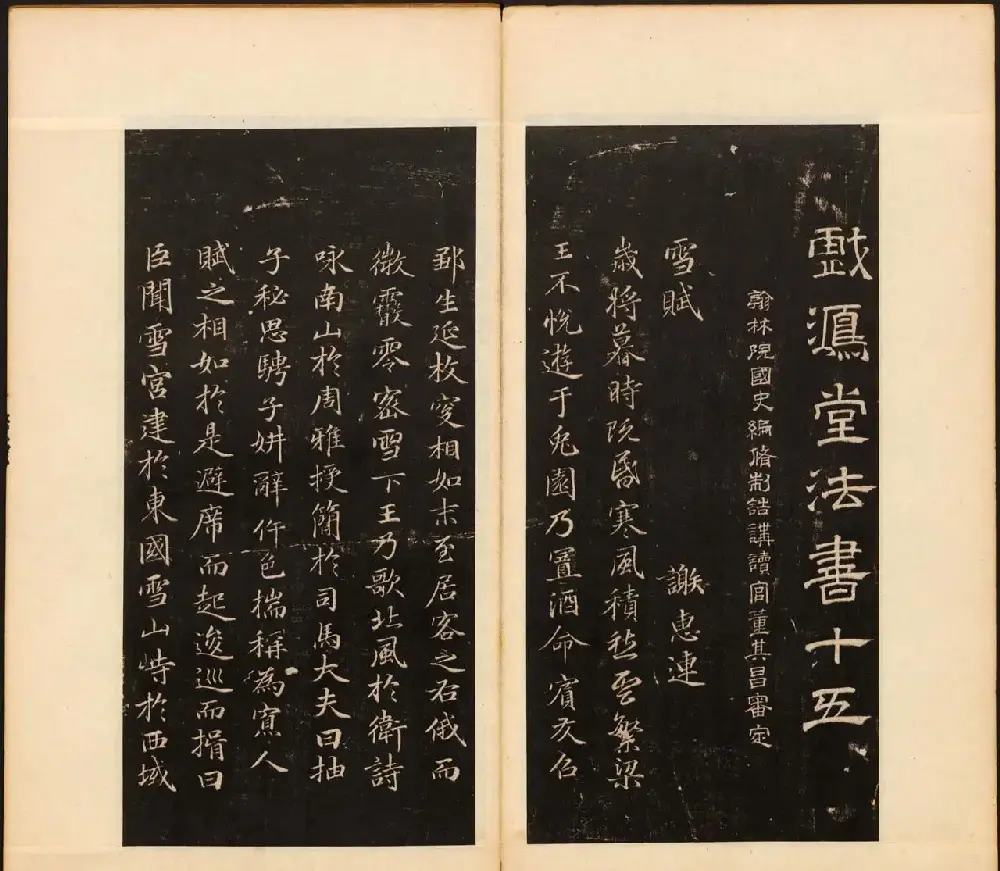 戲鴻堂法書十五
翰林院國史編脩制誥講讀官董其昌審定
雪賦
謝惠連
歲將暮時既昏寒風積愁雲繁梁
王不悅遊于兔園乃置酒命賓友召
鄒生延枚叟相如末至居客之右俄而
微霰零密雪下王乃歌北風於衛詩
咏南山於周雅授簡於司馬大夫曰抽
子秘思騁子妍辭侔色揣稱為寡人
賦之相如於是避席而起逡巡而揖曰
臣聞雪宮建於東國雪山峙於西域